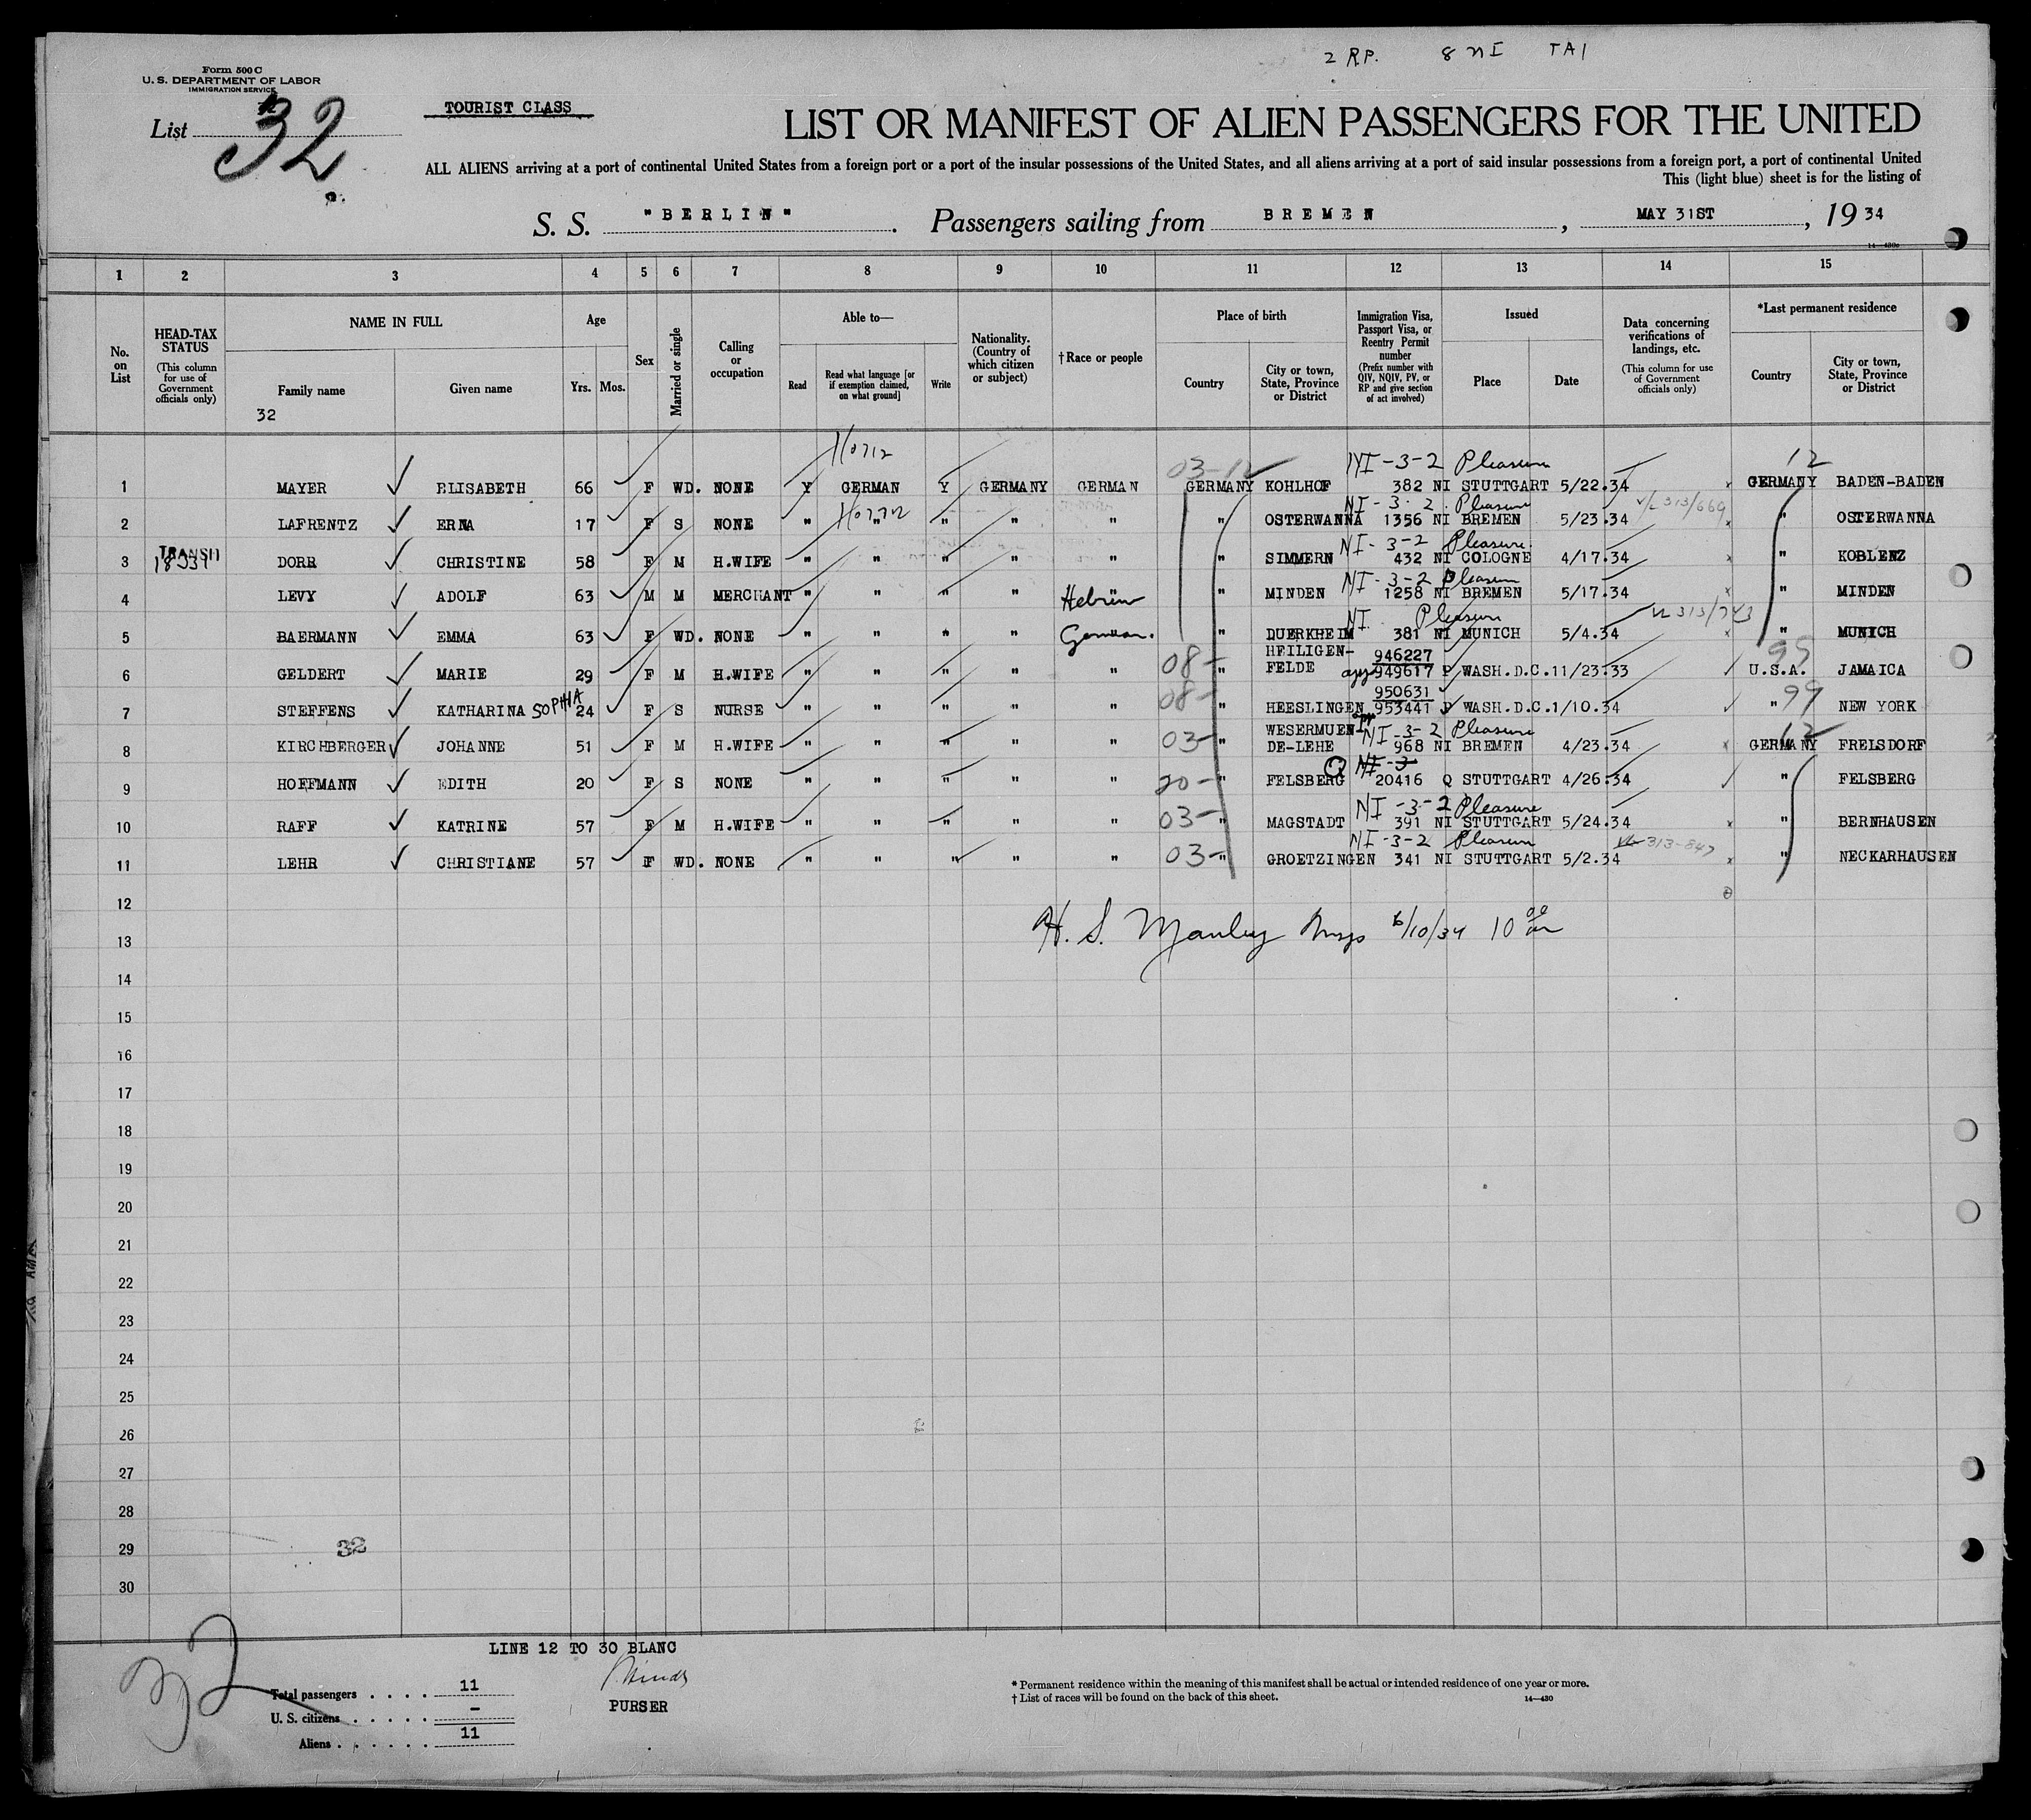 2 RP. 8 NI TA1
Form 500 C
U. S. DEPARTMENT OF LABOR
IMMIGRATION SERVICE
List 32
TOURIST CLASS
LIST OR MANIFEST OF ALIEN PASSENGERS FOR THE UNITED
ALL ALIENS arriving at a port of continental United States from a foreign port or a port of the insular possessions of the United States, and all aliens arriving at a port of said insular possessions from a foreign port, a port of continental United
This (light blue) sheet is for the listing of
S. S. "BERLIN". Passengers sailing from BREMEN, MAY 31ST, 19 34
14—430c
1 2 3 4 5 6 7 8 9 10 11 12 13 14 15
No. on List
HEAD-TAX STATUS (This column for use of Government officials only)
NAME IN FULL
Family name
Given name
32
Age
Yrs. Mos.
Sex
Married or single
Calling or occupation
Able to—
Read
Read what language [or if exemption claimed, on what ground]
Write
Nationality. (Country of which citizen or subject)
†Race or people
Place of birth
Country
City or town, State, Province or District
Immigration Visa, Passport Visa, or Reentry Permit number (Prefix number with QIV, NQIV, PV, or RP and give section of act involved)
Issued
Place
Date
Data concerning verifications of landings, etc. (This column for use of Government officials only)
*Last permanent residence
Country
City or town, State, Province or District
03-12 NI-3-2 Pleasure 12
1 MAYER ELISABETH 66 F WD. NONE Y GERMAN Y GERMANY GERMAN GERMANY KOHLHOF 382 NI STUTTGART 5/22.34 x GERMANY BADEN-BADEN
NI-3-2 Pleasure V/L 313/669
2 LAFRENTZ ERNA 17 F S NONE " " " " " " OSTERWANNA 1356 NI BREMEN 5/23.34 x " OSTERWANNA
TRANSIT NI-3-2 Pleasure
3 DORR CHRISTINE 58 F M H.WIFE " " " " " " SIMMERN 432 NI COLOGNE 4/17.34 x " KOBLENZ
NI-3-2 Pleasure
4 LEVY ADOLF 63 M M MERCHANT " " " " Hebrew " MINDEN 1258 NI BREMEN 5/17.34 x " MINDEN
NI Pleasure VL 313/743
5 BAERMANN EMMA 63 F WD. NONE " " " " German. " DUERKHEIM 381 NI MUNICH 5/4.34 x " MUNICH
HEILIGEN- 946227 99
6 GELDERT MARIE 29 F M H.WIFE " " " " " 08- " FELDE app 949617 P WASH.D.C. 11/23.33 U.S.A. JAMAICA
950631 99
7 STEFFENS KATHARINA SOPHIA 24 F S NURSE " " " " " 08- " HEESLINGEN 953441 P WASH.D.C. 1/10.34 " NEW YORK
WESERMUEN- app NI-3-2 Pleasure 12
8 KIRCHBERGER JOHANNE 51 F M H.WIFE " " " " " 03- " DE-LEHE 968 NI BREMEN 4/23.34 x GERMANY FRELSDORF
Q NI-3
9 HOFFMANN EDITH 20 F S NONE " " " " " 20- " FELSBERG 20416 Q STUTTGART 4/26.34 " FELSBERG
NI-3-2 Pleasure
10 RAFF KATRINE 57 F M H.WIFE " " " " " 03- " MAGSTADT 391 NI STUTTGART 5/24.34 x " BERNHAUSEN
NI-3-2 Pleasure VL 313-847
11 LEHR CHRISTIANE 57 F WD. NONE " " " " " 03- " GROETZINGEN 341 NI STUTTGART 5/2.34 x " NECKARHAUSEN
12
H. S. Manley Insp 6/10/34 10 00 am
13
14
15
16
17
18
19
20
21
22
23
24
25
26
27
28
29 32
30
32
LINE 12 TO 30 BLANC
Total passengers . . . . 11
PURSER
U. S. citizens . . . . . –
Aliens . . . . . . 11
* Permanent residence within the meaning of this manifest shall be actual or intended residence of one year or more.
† List of races will be found on the back of this sheet. 14—430